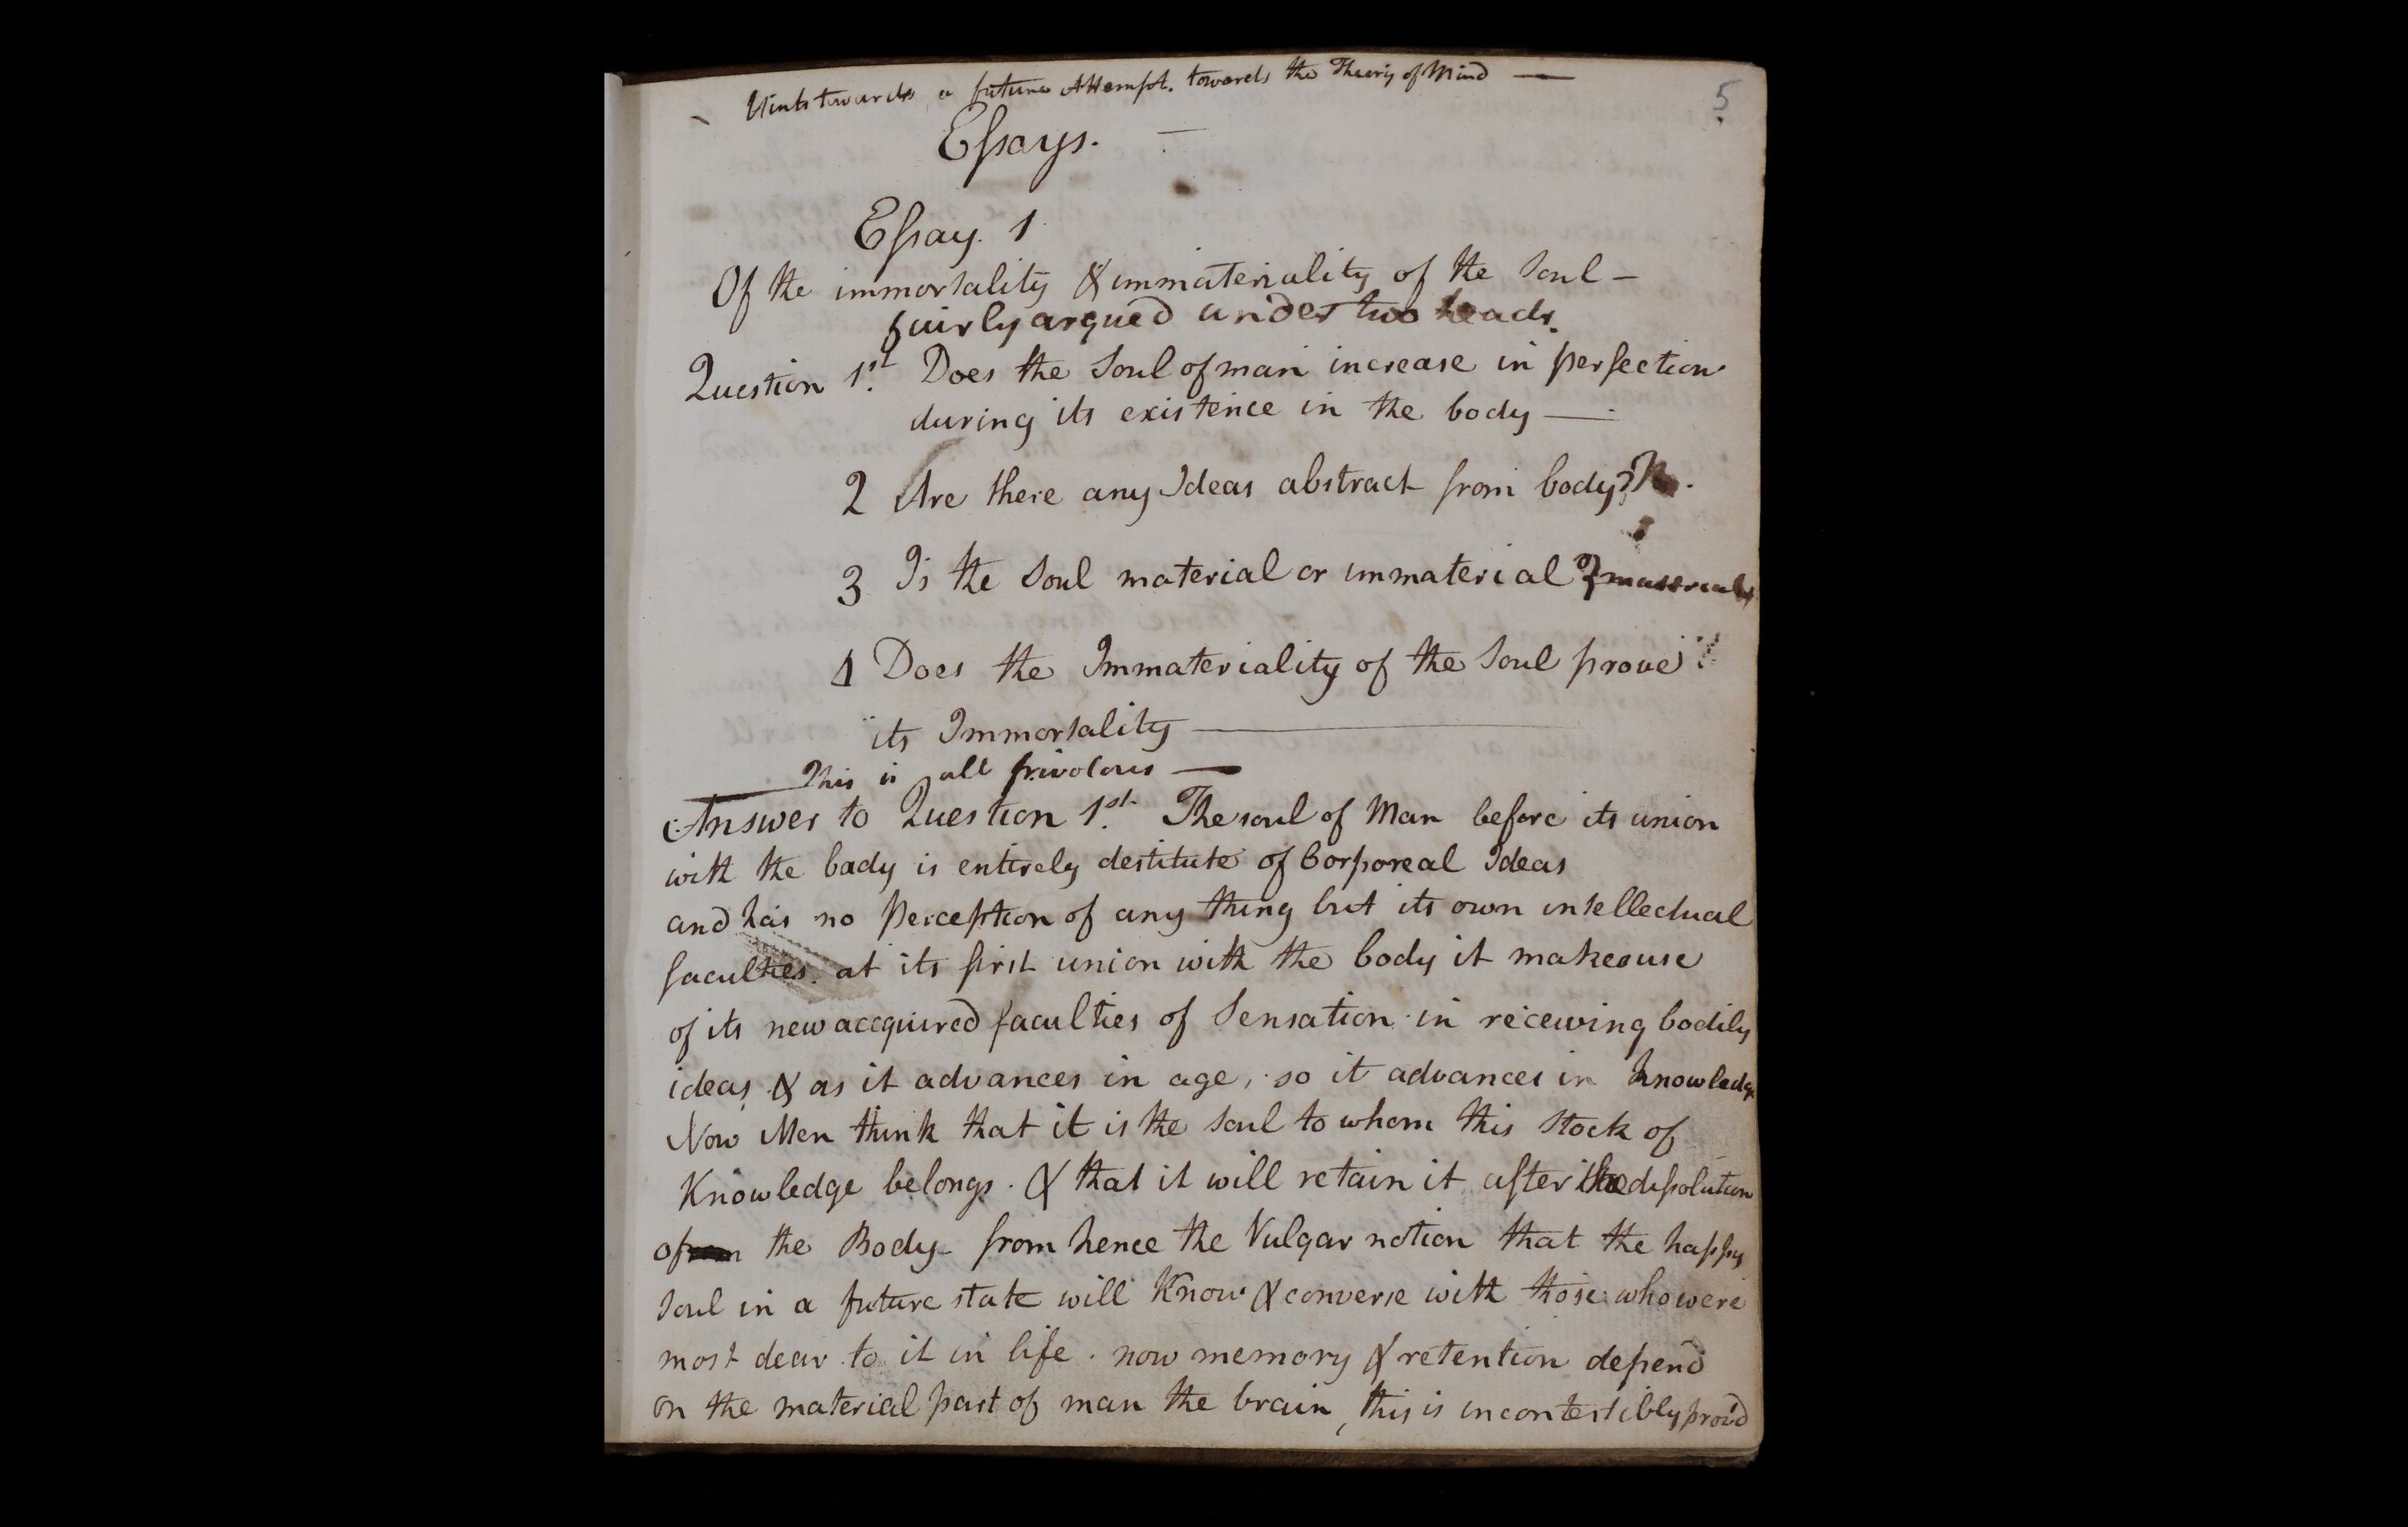 Hints towards a future Attempt. towards the Theory of Mind —
5
Eſsays. —
Eſsay. 1
Of the immortality & immateriality of the Soul —
fairly argued under two heads.
Question 1st. Does the Soul of man increase in perfection
during its existence in the body —
2 Are there any Ideas abstract from body?
3 Is the Soul material or immaterial ? material
4 Does the Immateriality of the Soul prove ?
its Immortality —
This is all frivolous —
Answer to Question 1st. The soul of Man before its union
with the body is entirely destitute of Corporeal Ideas
and has no Perception of any thing but its own intellectual
faculties. at its first union with the body it makes use
of its new accquired faculties of Sensation in receiving bodily
ideas, & as it advances in age, so it advances in knowledge
Now Men think that it is the soul to whom this stock of
Knowledge belongs. & that it will retain it after the diſsolution
of the Body - from hence the Vulgar notion that the happy
Soul in a future state will Know & converse with those who were
most dear to it in life. now memory & retention depend
on the material part of man the brain, this is incontestibly prov'd